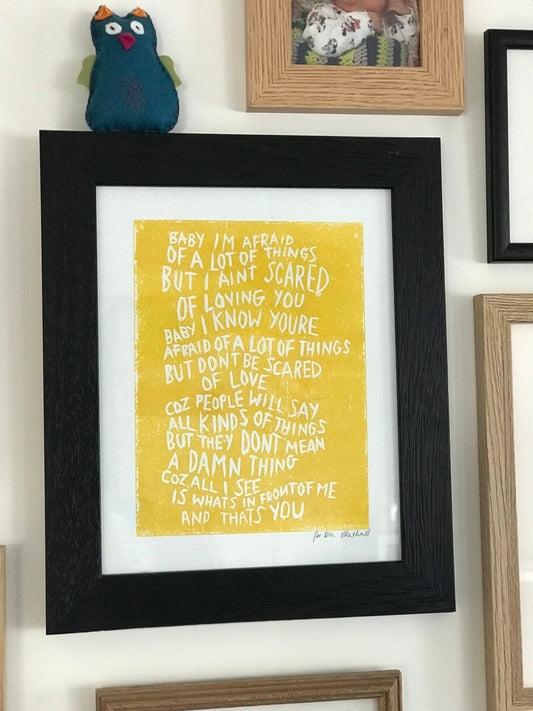 BABY IM AFRAID
OF A LOT OF THINGS
BUT I AINT SCARED
OF LOVING YOU
BABY I KNOW YOURE
AFRAID OF A LOT OF THINGS
BUT DONT BE SCARED
OF LOVE
COZ PEOPLE WILL SAY
ALL KINDS OF THINGS
BUT THEY DONT MEAN
A DAMN THING
COZ ALL I SEE
IS WHATS IN FRONT OF ME
AND THATS YOU
for